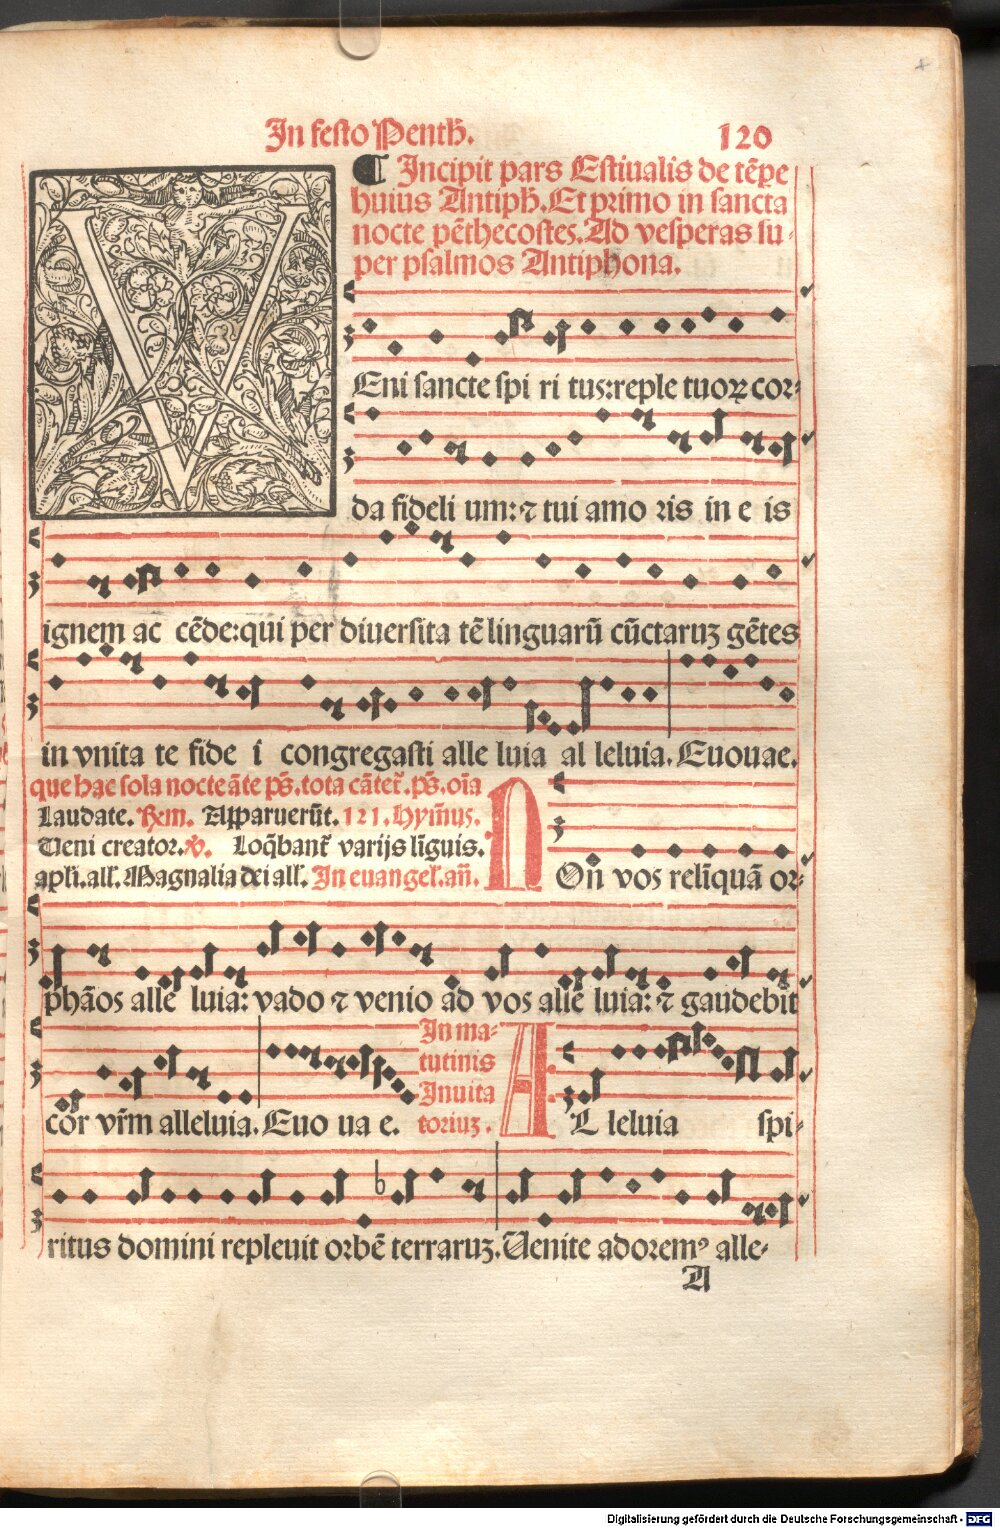 In festo Penth̄.
120
¶ Incipit pars Estiualis de tēpe
huius Antiph̄. Et primo in sancta
nocte pēthecostes. Ad vesperas su-
per psalmos Antiphona.
VEni sancte spi ri tus: reple tuoꝝ cor-
da fideli um: ⁊ tui amo ris in e is
ignem ac cēde: qui per diuersita tē linguarū cūctaruꝫ gētes
in vnita te fide i congregasti alle luia al leluia. Euouae.
que hac sola nocte āte ps̄. tota cātet̄. ps̄. oīa
Laudate. Rm. Apparuerūt. 121. Hym̄us.
Ueni creator. ꝟ. Loq̄bant̄ varijs līguis.
apl̄i. all̄. Magnalia dei all̄. In euangel̄. an̄.
NOn̄ vos relīquā or-
phāos alle luia: vado ⁊ venio ad vos alle luia: ⁊ gaudebit
cor vr̄m alleluia. Euo ua e.
In ma-
tutinis
Inuita
toriuꝫ.
AL leluia spi-
ritus domini repleuit orbē terraruꝫ. Uenite adoremꝰ alle-
A
Digitalisierung gefördert durch die Deutsche Forschungsgemeinschaft - DFG